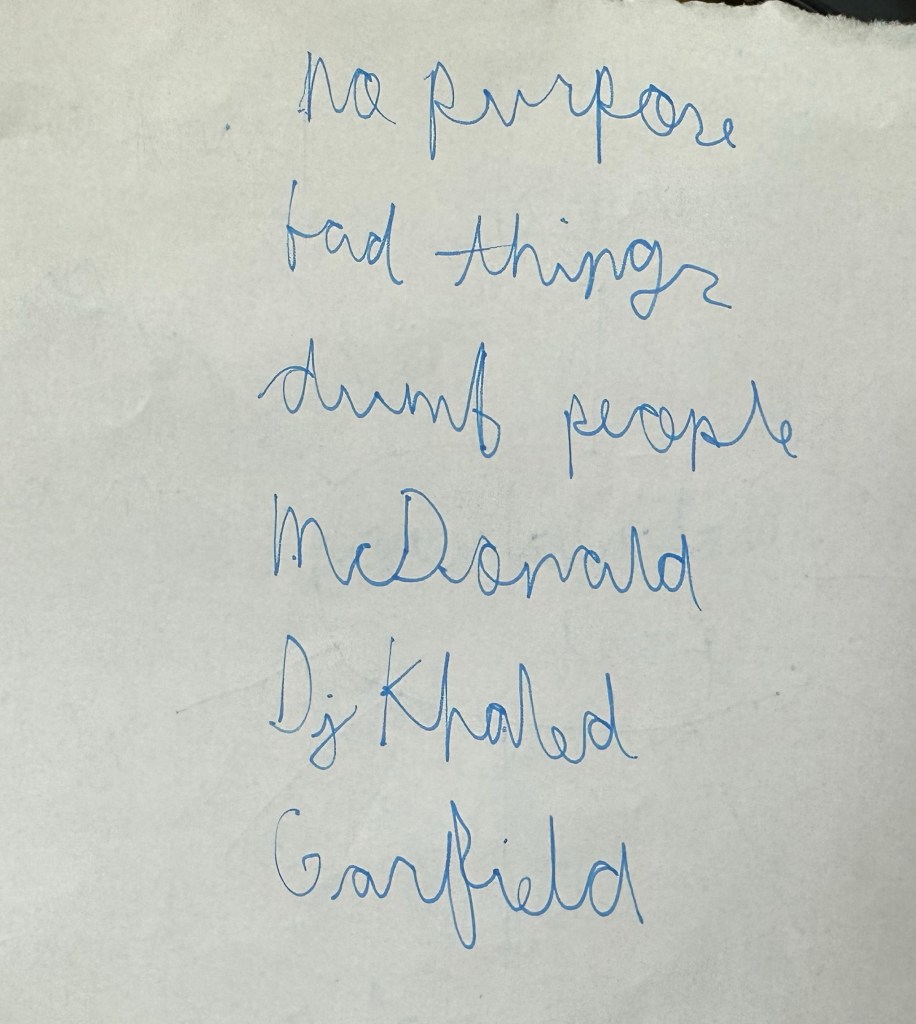 no purpose
bad things
dumb people
McDonald
Dj Khaled
Garfield